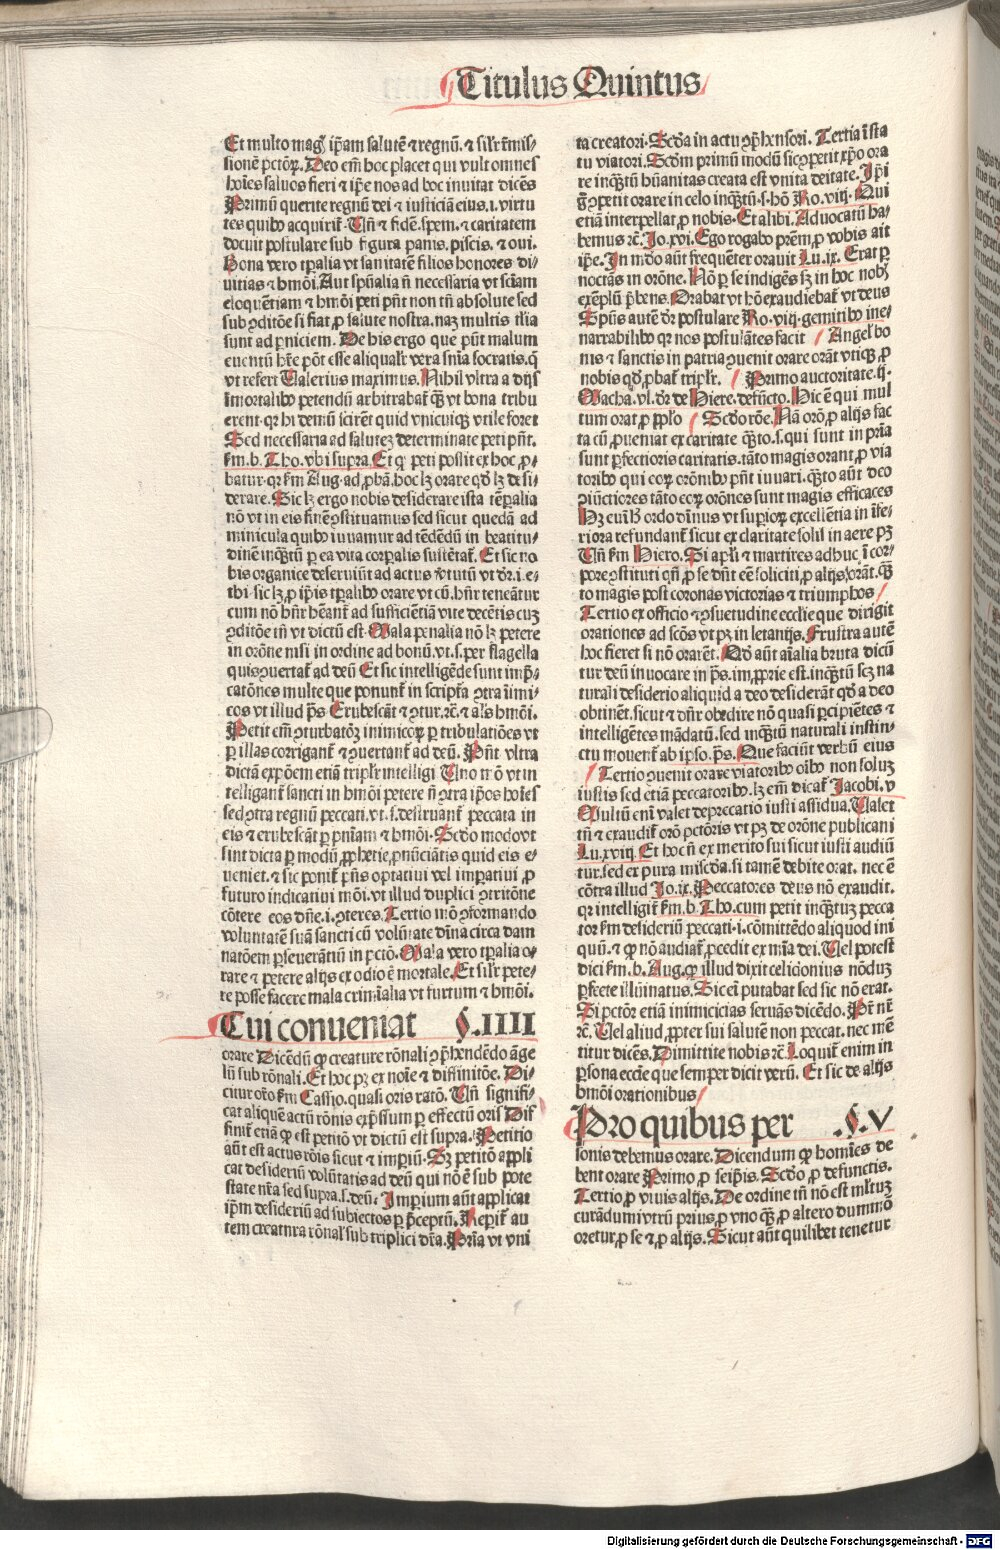 Titulus Quintus
Et multo magꝭ ip̄am salutē ⁊ regnū. ⁊ sil'r r̄mis⸗
sionē pctōꝝ. Deo em̄ hoc placet qui vult omnes
hoīes saluos fieri ⁊ ip̄e nos ad hoc inuitat dicēs
Primū querite regnū dei ⁊ iusticiā eius. i. virtu
tes quibꝰ acquirit̄. Tn̄ ⁊ fidē. spem. ⁊ caritatem
docuit postulare sub figura panis. piscis. ⁊ oui.
Bona vero tp̄alia vt sanitatē filios honores di⸗
uitias ⁊ hmōi. Aut sp̄ualia nō necessaria vt sciam
eloquētiam ⁊ hmōi peti pn̄t non tn̄ absolute sed
sub ꝯditōe si fiat ꝓ salute nostra. naꝫ multis t̄lia
sunt ad ꝑniciem. De his ergo que pn̄t malum
euentū h̄re pōt esse aliqualr̄ vera sn̄ia socratis. q̄
vt refert Valerius maximus. Nihil vltra a dijs
īmortalibꝰ petendū arbitrabat̄ ꝙ̄ vt bona tribu
erent. qr hi demū scirēt quid vnicuiqꝫ vtile foret
Sed necessaria ad saluteꝫ determinate peti pn̄t.
fm. b. Tho. vbi supra. Et ꝙ peti possit ex hoc ꝓ⸗
batur. qr fm Aug. ad ꝓbā. hoc lꝫ orare qd̓ lꝫ desi⸗
derare. Sic lꝫ ergo nobis desiderare ista tēꝑalia
nō vt in eis finē ꝯstituamus sed sicut quedā ad
minicula quibꝰ iuuamur ad tēdēdū in beatitu⸗
dinē inqꝫtū ꝑ ea vita corꝑalis sustētat̄. Et sic no
bis organice deseruiūt ad actus v̓tutū vt dr̄. i. e⸗
thi. sic lꝫ ꝓ ip̄is tꝑalibꝰ orare vt cū. hn̄r teneātur
cum nō hn̄r beātr̄ ad sufficiētiā vite decētis cuꝫ
ꝯditōe tn̄ vt dictū est. Mala penalia nō lꝫ petere
in orōne nisi in ordine ad bonū. vt. s. per flagella
quis ꝯuertat̄ ad deū Et sic intelligēde sunt imp̄⸗
catōnes multe que ponunt̄ in scriptr̄a ꝯtra inimi⸗
cos vt illud ps̄ Erubescāt ⁊ ꝯtur. ꝛc̄. ⁊ als̄ hmōi.
Petit em̄ ꝯturbatōꝫ inimicoꝝ ꝑ tribulatiōes vt
ꝑ illas corrigant̄ ⁊ ꝯuertant̄ ad deū. Pn̄t vltra
dictā expōem etiā triplr̄ intelligi Uno mō vt in
telligant̄ sancti in hmōi petere nō ꝯtra ip̄os hoīes
sed ꝯtra regnū peccati. vt. s. destruant̄ peccata in
eis ⁊ erubescāt ꝑ pn̄iam ⁊ hmōi. Scd̓o modo vt
sint dicta ꝑ modū ꝓphetie. ꝓnūciātis quid eis e⸗
ueniet. ⁊ sic ponit̄ pn̄s optatiui vel impatiui ꝓ
futuro indicatiui mōi. vt illud duplici ꝯtritōne
cōtere eos dn̄e. i. ꝯteres. Tertio mō ꝯformando
voluntatē suā sancti cū volūtate diuina circa dam
natōem ꝑseuerātiū in pctō. Mala vero tꝑalia o⸗
rare ⁊ petere alijs ex odio ē mortale. Et sil'r pete⸗
re posse facere mala crimīalia vt furtum ⁊ hmōi.
Cui conueniat §.IIII
orare Dicēdū ꝙ creature rōnali ꝯp̄hndēdo āge
lū sub rōnali. Et hoc pꝫ ex noīe ⁊ diffinitōe. Di⸗
citur oro fm Cassio. quasi oris ratō. Tn̄ signifi⸗
cat aliquē actū rōnis exp̄ssum ꝑ effectū oris Dif
finit̄ etiā ꝙ est petitō vt dictū est supra. Petitio
aūt est actus rōis sicut ⁊ imꝑiū. Sꝫ petitō appli
cat desideriū volūtatis ad deū qui nō ē sub pote
state nr̄a sed supra. s. deū. Imperium aūt applicat
ip̄m desideriū ad subiectos ꝑ p̄ceptū. Reꝑit̄ au
tem creatura rōnal' sub triplici dr̄a. Pria vt vni
ta creatori. Scd̓a in actu ꝯp̄hn̄sori. Tertia ī sta
tu viatori. Scd̓m primū modū sic ꝯpetit xp̄o ora
re inqꝫtū hūanitas creata est vnita deitate. Ip̄i
g̊ ꝯpetit orare in celo inqꝫtū. s. hō Ro. viij. Qui
etiā interpellat ꝓ nobis. Et alibi. Aduocatū ha⸗
bemus ꝛc̄. Jo. xvi. Ego rogabo prēm ꝓ vobis ait
ip̄e. In mūdo aūt frequēter orauit Lu. ix. Erat ꝑ
noctās in orōne. Nō ꝑ se indigēs sꝫ in hoc nobꝭ
exēplū p̄bens. Orabat vt hō exaudiebat̄ vt deus
Sp̄us autē dr̄ postulare Ro. viij. gemitibꝰ ine⸗
narrabilibꝰ qr nos postulātes facit Angel' bo
nis ⁊ sanctis in patria ꝯuenit orare orāt vtiqꝫ ꝓ
nobis qd̓ ꝓbat̄ triplr̄. Primo auctoritate. ij.
Macha. vl. dr̄ de Hiere. defūcto. Hic ē qui mul
tum orat ꝓ pplo Scd̓o rōe. Nā orō ꝓ alijs fac
ta cū ꝓueniat ex caritate qꝫto. s. qui sunt in pr̄ia
sunt ꝑfectioris caritatis. tāto magis orant ꝓ via
toribꝰ qui eoꝝ orōnibꝰ pn̄t iuuari. qꝫto aūt deo
ꝯiūctiores tāto eoꝝ orōnes sunt magis efficaces
Hꝫ em̄ hꝫ ordo diuinus vt suꝑioꝝ excellētia in īfe⸗
riora refundant̄ sicut ex claritate solis in aere pꝫ
Tn̄ fm Hiero. Si apl'i ⁊ martires adhuc ī cor⸗
pore ꝯstituti qn̄ ꝓ se dn̄t eē soliciti ꝓ alijs orāt. qꝫ
to magis post coronas victorias ⁊ triumphos
Tertio ex officio ⁊ ꝯsuetudine ecclīe que dirigit
orationes ad scōs vt pꝫ in letanijs. Frustra autē
hoc fieret si nō orarēt. Qd̓ aūt aīalia bruta dicū
tur deū inuocare in ps̄. im ꝓprie est. inqꝫtū scꝫ na
turali desiderio aliquid a deo desiderāt qd̓ a deo
obtinēt. sicut ⁊ dn̄r obedire nō quasi ꝑcipiētes ⁊
intelligētes mādatū. sed inqꝫtū naturali instin⸗
ctu mouent̄ ab ipso. ps̄. Que faciūt verbū eius
Tertio ꝯuenit orare viatoribꝰ oībꝰ non soluꝫ
iustis sed etiā peccatoribꝰ. lꝫ em̄ dicat̄ Jacobi. v
Multū em̄ valet deprecatio iusti assidua. Valet
tn̄ ⁊ exaudit̄ orō pctōris vt pꝫ de orōne publicani
Lu. xviij. Et hoc nō ex merito sui sicut iusti audiū
tur. sed ex pura miscd̓ia. si tamē debite orat. nec ē
cōtra illud Jo. ix. Peccatores deus nō exaudit.
qr intelligit̄ fm. b. Tho. cum petit inqꝫtuꝫ pecca
tor fm desideriū peccati. i. cōmittēdo aliquod ini
quū. ⁊ ꝙ nō audiat̄ ꝓcedit ex mīa dei. Vel potest
dici fm. b. Aug. ꝙ illud dixit celidonius nōduꝫ
ꝑfecte illuminatus. Sic em̄ putabat sed sic nō erat.
Si pctōr etiā inimicicias seruās dicēdo. Pr̄ nr̄
ꝛc̄. Vel aliud. ꝓpter sui salutē non peccat. nec mē
titur dicēs. Dimittite nobis ꝛc̄ Loquit̄ enim in
ꝑsona ecclīe que semper dicit verū. Et sic de alijs
hmōi orationibus
Pro quibus per .§.V
sonis debemus orare. Dicendum ꝙ homīes de
bent orare Primo ꝓ seip̄is. Scd̓o ꝓ defunctis.
Tertio ꝓ viuis alijs. De ordine tn̄ nō est ml'tuꝫ
curādum vtrū prius ꝓ vno qꝫ ꝓ altero dummō
oretur ꝓ se ⁊ ꝓ alijs. Sicut aūt quilibet tenetur
Digitalisierung gefördert durch die Deutsche Forschungsgemeinschaft - DFG